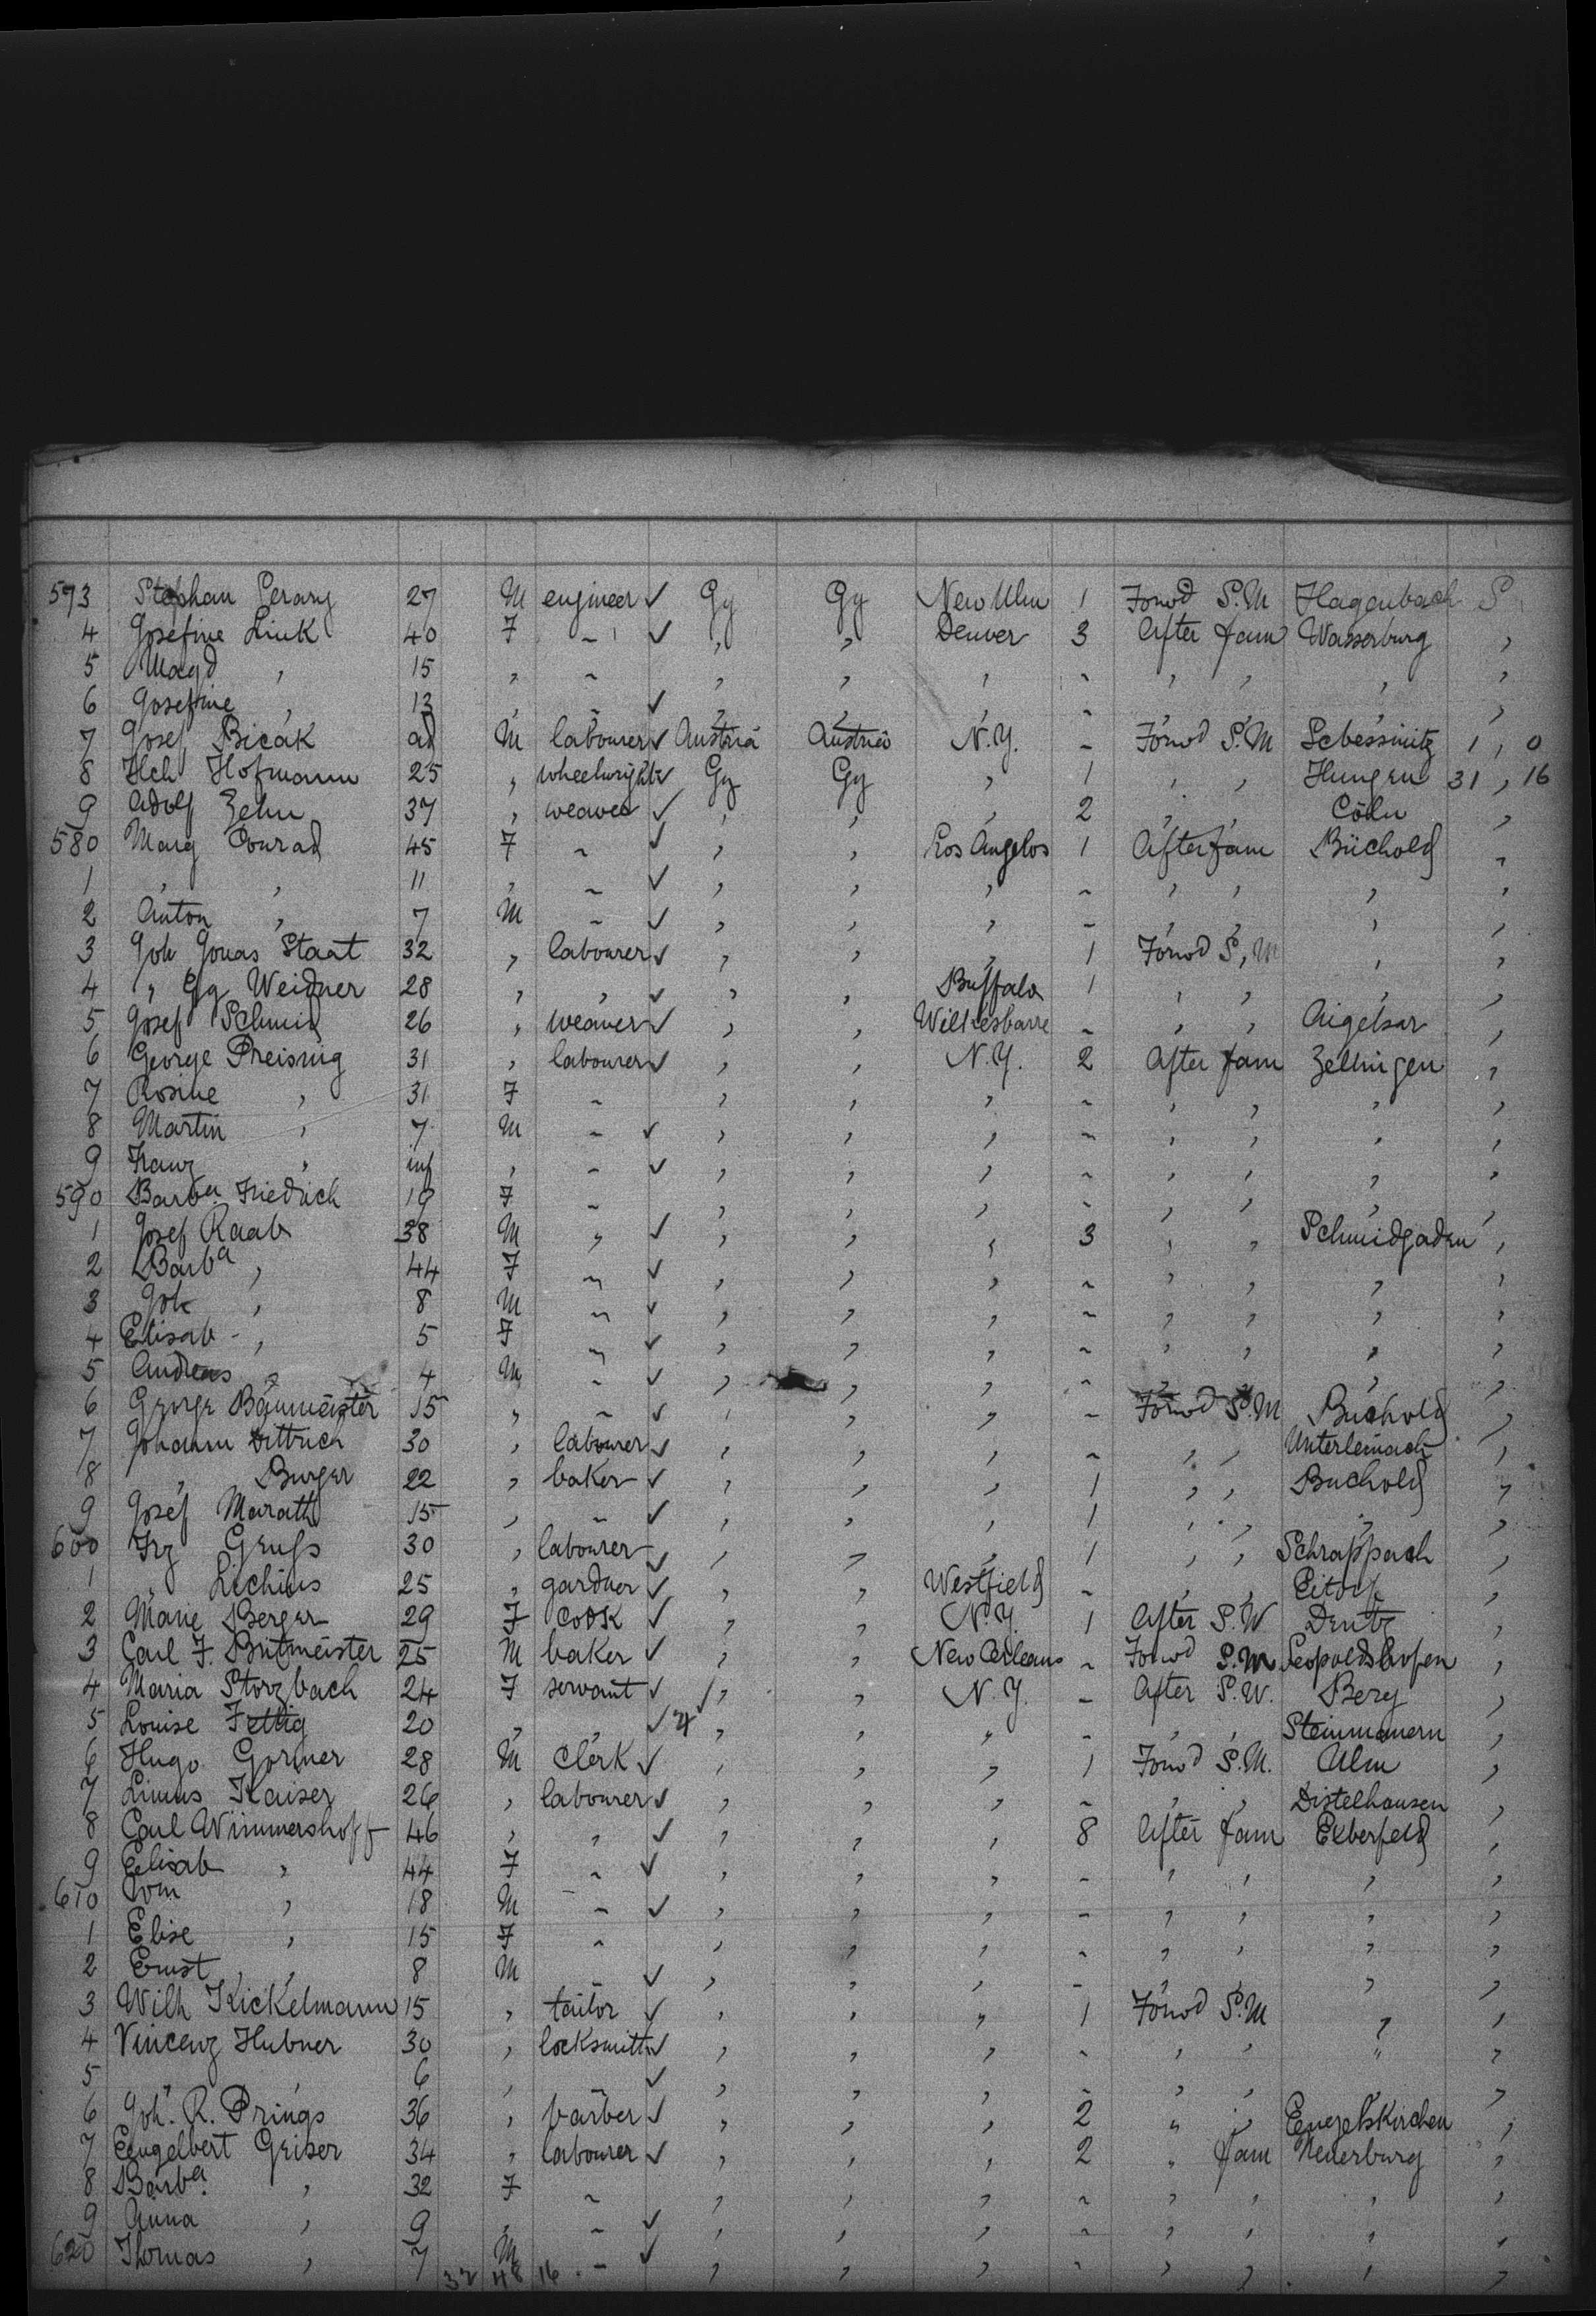 573 Stephan Gerany 27 M engineer ✓ Gy Gy New Ulm 1 Forwd S.M Hagenbach S
4 Josefine Link 40 F - ✓ " " Denver 3 After fam Wasserburg "
5 Magd " 15 " - " " " - " " " "
6 Josefine " 13 " - ✓ " " " - " " " "
7 Josef Bicak ad M labourer ✓ Austria Austria N.Y. - Forwd S.M Sebessinitz 1 , 0
8 Hch Hofmann 25 " wheelwright ✓ Gy Gy " 1 " " Hungen 31 , 16
9 Adolf Zehn 37 " weaver ✓ " " " 2 " " Cöln "
580 Marg Conrad 45 F - ✓ " " Los Angelos 1 After fam Büchold "
1 " " 11 " - ✓ " " " - " " " "
2 Anton " 7 M - ✓ " " " - " " " "
3 Joh Jonas Staat 32 " labourer ✓ " " " 1 Forwd S,M " "
4 " Gg Weidner 28 " " ✓ " " Buffalo 1 " " " "
5 Josef Schmid 26 " weaver ✓ " " Wilkesbarre - " " Aigelsar "
6 George Preisnig 31 " labourer ✓ " " N.Y. 2 After fam Zellingen "
7 Rosine " 31 F - " " " - " " " "
8 Martin " 7 M - ✓ " " " - " " " "
9 Franz " inf " - ✓ " " " - " " " "
590 Barba Friedrich 19 F - " " " - " " " "
1 Josef Raab 38 M " ✓ " " " 3 " " Schmidgaden "
2 Barba " 44 F - ✓ " " " - " " " "
3 Joh " 8 M - ✓ " " " - " " " "
4 Elisab - " 5 F - ✓ " " " - " " " "
5 Andreas " 4 M - ✓ " " " - " " " "
6 George Baumeister 15 " - ✓ " " " - Forwd S.M Buchold "
7 Johann Dittrich 30 " labourer ✓ " " " - " " Unterleinach "
8 " Burger 22 " baker ✓ " " " 1 " " Buchold "
9 Josef Marath 15 " - ✓ " " " 1 " " " "
600 Frz Grufs 30 " labourer ✓ " " " 1 " " Schrappach "
1 " Lichius 25 " gardner ✓ " " Westfield - " " Eitorf "
2 Marie Berger 29 F cook ✓ " " N.Y. 1 After S.W Deutz "
3 Carl F. Butmeister 25 M baker ✓ " " New Orleans - Forwd S.M Leopoldshofen "
4 Maria Storzbach 24 F servant ✓ ✓ " " N.Y. - After S.W. Berg "
5 Louise Fettig 20 " " ✓ 4 " " " - " " Steinmauern "
6 Hugo Gormer 28 M Clerk ✓ " " " 1 Forwd S.M. Ulm "
7 Linus Kaiser 26 " labourer ✓ " " " - " " Distelhausen "
8 Carl Wimmershoff 46 " " ✓ " " " 8 After fam Elberfeld "
9 Elisab " 44 F - ✓ " " " - " " " "
610 Wm " 18 M - ✓ " " " - " " " "
1 Elise " 15 F - " " " - " " " "
2 Ernst " 8 M - ✓ " " " - " " " "
3 Wilh Kickelmann 15 " tailor ✓ " " " 1 Forwd S.M " "
4 Vincenz Hubner 30 " locksmith ✓ " " " - " " " "
5 " " 6 " - ✓ " " " - " " " "
6 Joh. R. Prings 36 " barber ✓ " " " 2 " " Engelskirchen "
7 Engelbert Geiser 34 " labourer ✓ " " " 2 " fam Neuerburg "
8 Barba. " 32 F - " " " - " " " "
9 Anna " 9 " - ✓ " " " - " " " "
620 Thomas " 7 M - ✓ " " " - " " " "
32 48 16